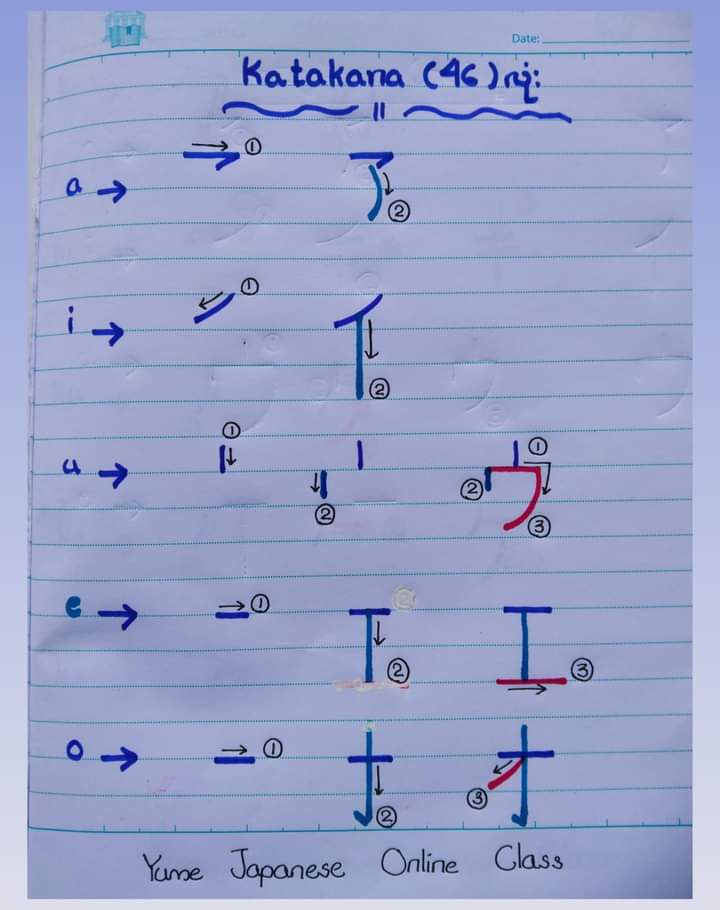 Date:
Katakana (46)
a → ① ア ②
i → ① イ ②
u → ① ② ウ ① ② ③
e → ① ② エ ③
o → ① ② オ ③
Yume Japanese Online Class